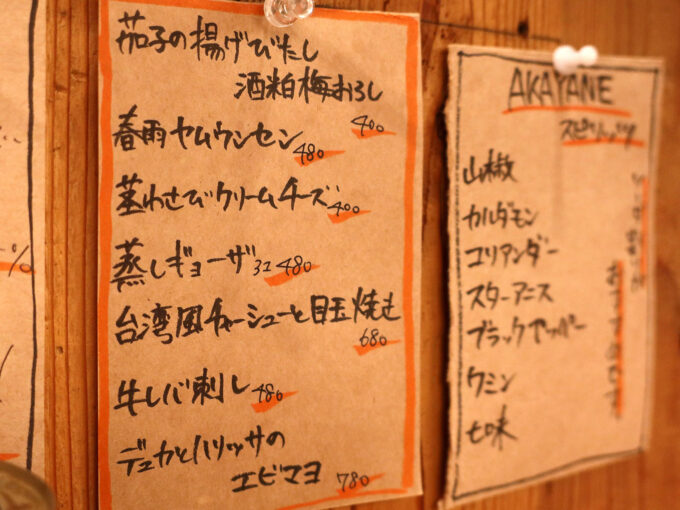 茄子の揚げびたし
酒粕梅おろし
400
春雨ヤムウンセン
480
茎わさびクリームチーズ
400
蒸しギョーザ 3コ 480
台湾風チャーシューと目玉焼き
680
牛しバ刺し 480
デュカとハリッサの
エビマヨ 780
AKAYANE
スピリッツ
山椒
カルダモン
コリアンダー
スターアニス
ブラックペッパー
クミン
七味
%